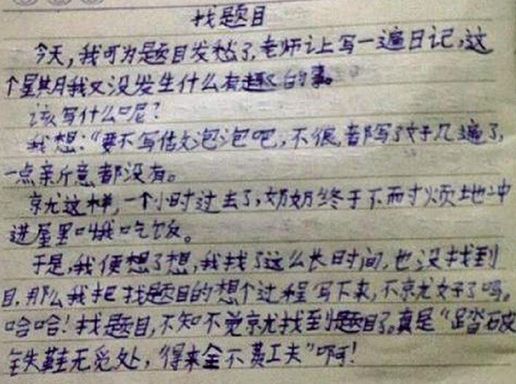 找题目
今天,我可为题目发愁了,老师让写一遍日记,这
个星期我又没发生什么有趣的事。
该写什么呢?
我想:“要不写吹泡泡吧,不很都写了好几遍了,
一点新意都没有。
就这样,一个小时过去了,奶奶终于不耐烦地冲
进屋里叫我吃饭。
于是,我便想了想,我找了这么长时间,也没找到
目,那么我把找题目的想个过程写下来,不就好了吗。
哈哈!找题目,不知不觉就找到题目了。真是“踏破
铁鞋无觅处,得来全不费工夫”啊!